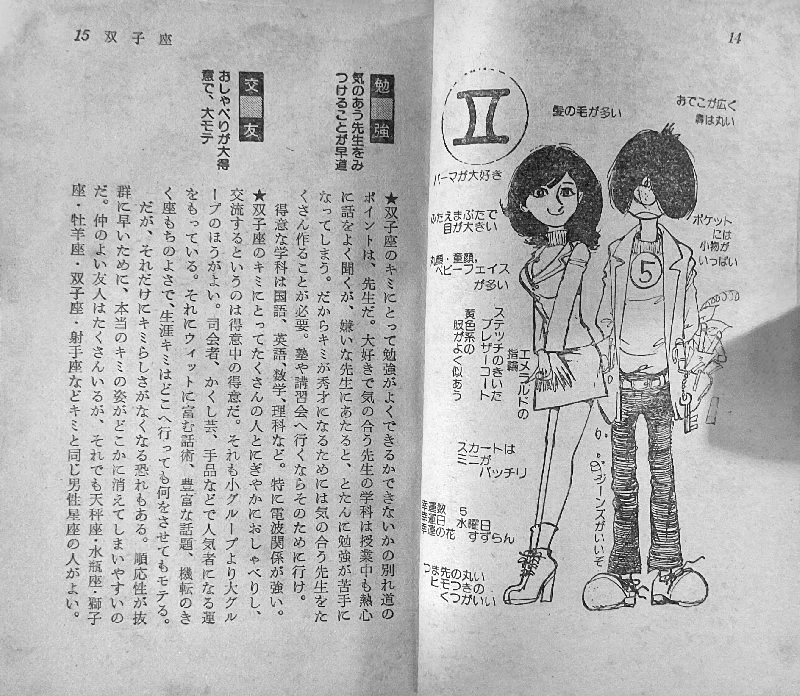 14
髪の毛が多い
おでこが広く
鼻は丸い
パーマが大好き
ふたえまぶたで
目が大きい
ポケット
には
小物が
いっぱい
丸顔・童顔、
ベビーフェイス
が多い
ステッチのきいた
ブレザーコート
黄色系の
服がよく似あう
エメラルドの
指輪
5
スカートは
ミニが
バッチリ
ジーンズがいいぞ
幸運数 5
幸運日 水曜日
幸運の花 すずらん
つま先の丸い
ヒモつきの
くつがいい
15 双子座
勉強
気のあう先生をみ
つけることが早道
★双子座のキミにとって勉強がよくできるかできないかの別れ道の
ポイントは、先生だ。大好きで気の合う先生の学科は授業中も熱心
に話をよく聞くが、嫌いな先生にあたると、とたんに勉強が苦手に
なってしまう。だからキミが秀才になるためには気の合う先生をた
くさん作ることが必要。塾や講習会へ行くならそのために行け。
得意な学科は国語、英語、数学、理科など。特に電波関係が強い。
交友
おしゃべりが大得
意で、大モテ
★双子座のキミにとってたくさんの人とにぎやかにおしゃべりし、
交流するというのは得意中の得意だ。それも小グループより大グル
ープのほうがよい。司会者、かくし芸、手品などで人気者になる運
をもっている。それにウィットに富む話術、豊富な話題、機転のき
く座もちのよさで、生涯キミはどこへ行っても何をさせてもモテる。
だが、それだけにキミらしさがなくなる恐れもある。順応性が抜
群に早いために、本当のキミの姿がどこかに消えてしまいやすいの
だ。仲のよい友人はたくさんいるが、それでも天秤座・水瓶座・獅子
座・牡羊座・双子座・射手座などキミと同じ男性星座の人がよい。